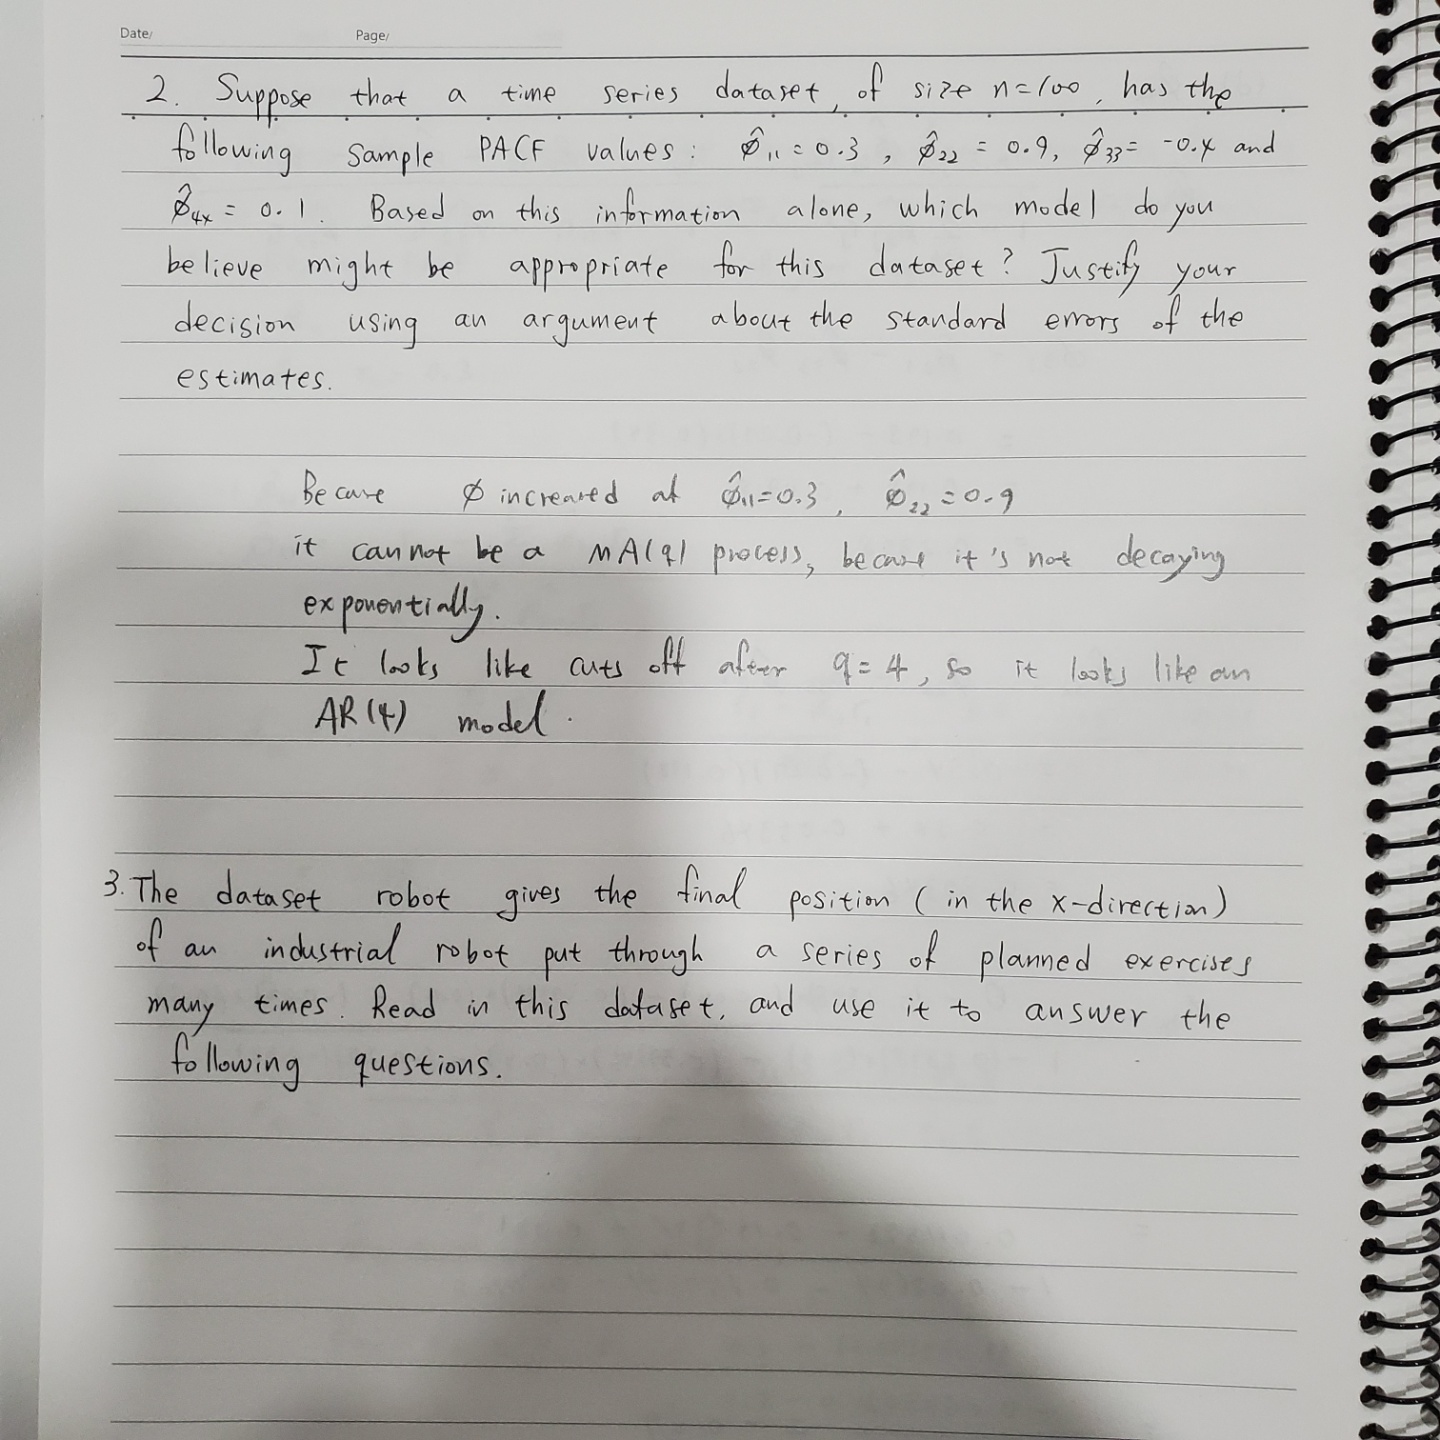 Date/ Page/
2. Suppose that a time series dataset, of size n=100, has the
following sample PACF values: φ̂₁₁ = 0.3, φ̂₂₂ = 0.9, φ̂₃₃ = -0.4 and
φ̂₄₄ = 0.1. Based on this information alone, which model do you
believe might be appropriate for this dataset? Justify your
decision using an argument about the standard errors of the
estimates.
Because φ increased at φ̂₁₁=0.3, φ̂₂₂=0.9
it cannot be a MA(q) process, because it's not decaying
exponentially.
It looks like cuts off after q=4, so it looks like an
AR(4) model.
3. The dataset robot gives the final position (in the x-direction)
of an industrial robot put through a series of planned exercises
many times. Read in this dataset, and use it to answer the
following questions.